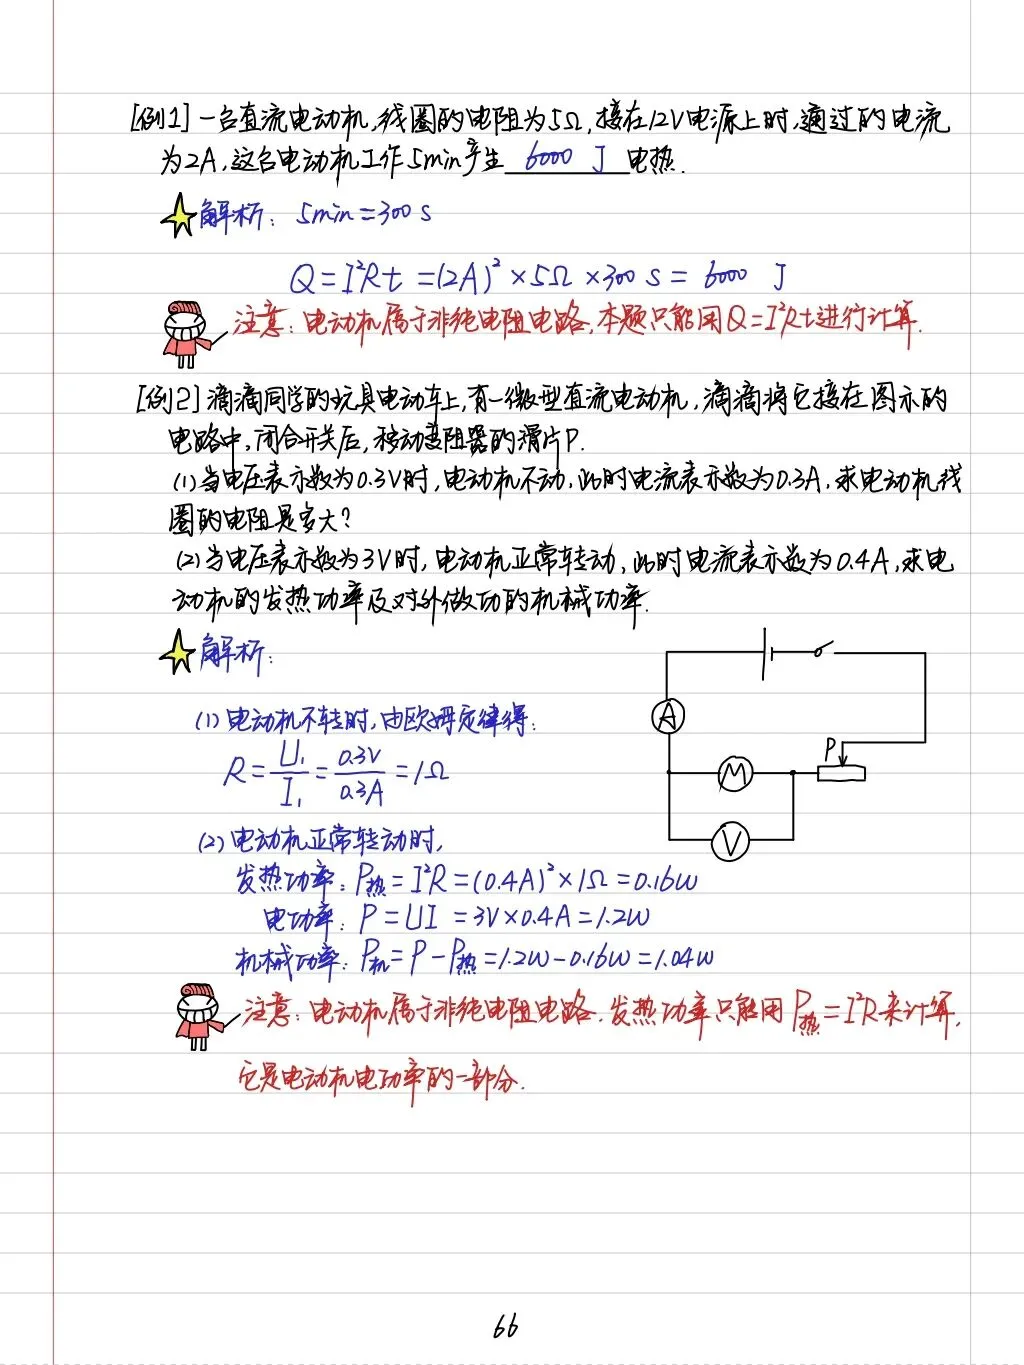 [例1]一台直流电动机,线圈的电阻为5Ω,接在12V电源上时,通过的电流
为2A,这台电动机工作5min产生 6000 J 电热.
解析: 5min=300s
Q=I²Rt=(2A)²×5Ω×300s=6000 J
注意:电动机属于非纯电阻电路,本题只能用Q=I²Rt进行计算.
[例2]滴滴同学的玩具电动车上,有一微型直流电动机,滴滴将它接在图示的
电路中,闭合开关后,移动变阻器的滑片P.
(1)当电压表示数为0.3V时,电动机不动,此时电流表示数为0.3A,求电动机线
圈的电阻是多大?
(2)当电压表示数为3V时,电动机正常转动,此时电流表示数为0.4A,求电
动机的发热功率及对外做功的机械功率.
解析:
(1)电动机不转时,由欧姆定律得:
R=U₁/I₁=0.3V/0.3A=1Ω
(2)电动机正常转动时,
发热功率:P热=I²R=(0.4A)²×1Ω=0.16W
电功率:P=UI=3V×0.4A=1.2W
机械功率:P机=P-P热=1.2W-0.16W=1.04W
A
P
M
V
注意:电动机属于非纯电阻电路,发热功率只能用P热=I²R来计算,
它是电动机电功率的一部分.
66